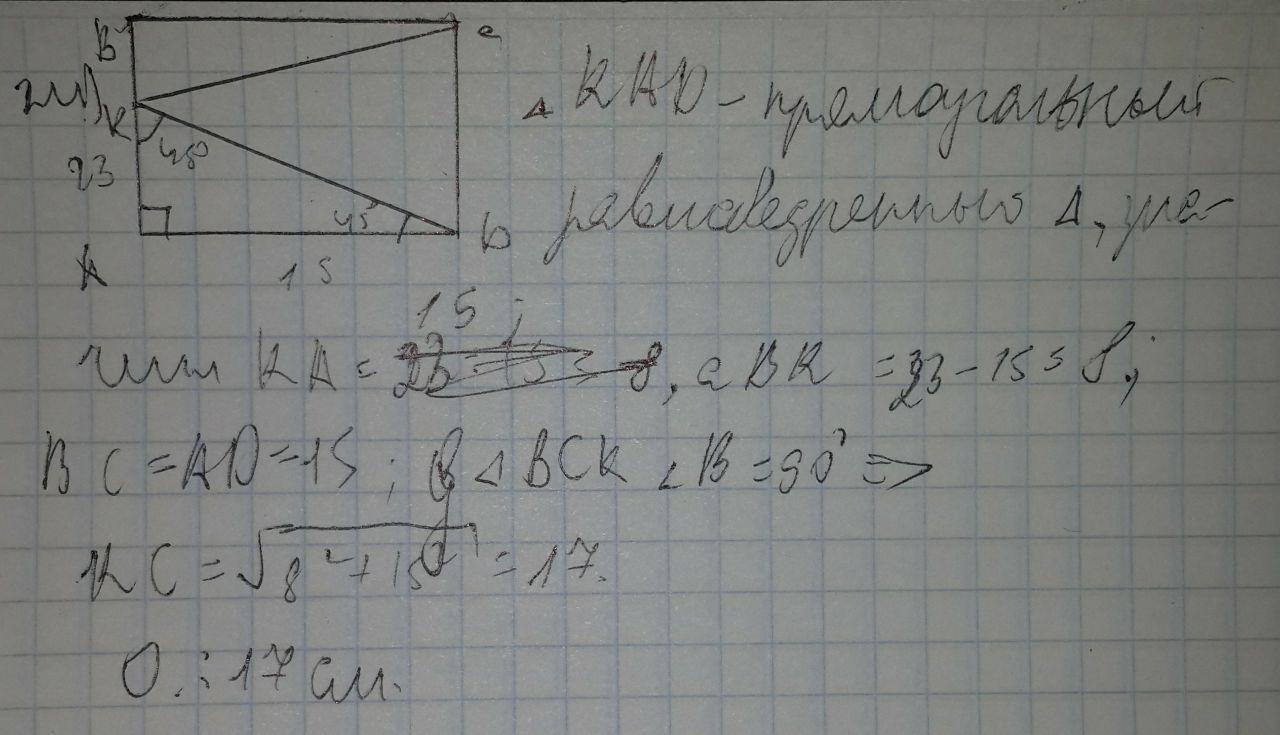 B
C
K
45°
23
45
D
A
15
△ KAD – прямоугольный
равнобедренный △, зна-
чит KA = 15; а BK = 23 - 15 = 8;
BC = AD = 15; В △ BCK ∠B = 90° =>
KC = √8² + 15² = 17.
О.: 17 см.